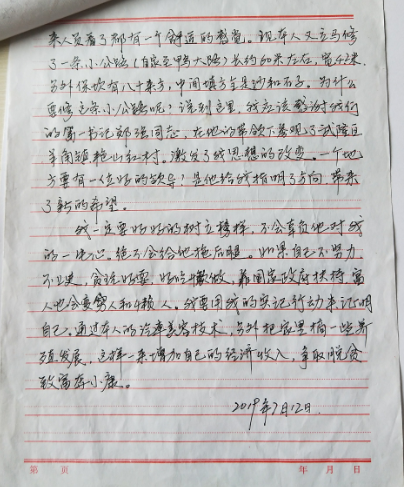 来人员看了都有一个舒适的感觉。现本人又立马修
了一条小公路(自家至鸭大路)长约60米左右,宽4.2米,
另外保坎有八十来方,中间填方全是沙和石子。为什么
要修这条小公路呢?说到这里,我应该感谢我们
的第一书记 强同志,在他的带领下参观了武隆县
羊角镇艳山红村。激发了我思想的改变。一个地
方要有一位好的领导!是他给我指明了方向,带来
了新的希望。
我一定要好好的树立榜样,不会辜负他对我
的一片心。绝不会给他拖后腿。如果自己不努力,
不上进,贪玩好耍,好吃懒做,靠国家政府扶持,富
人也会变穷人和赖人。我要用我的实际行动来证明
自己,通过本人的 技术,另外把家里搞一些养
殖发展,这样一来增加自己的经济收入,争取脱贫
致富奔小康。
2019年7月12日.
第 页
年 月 日